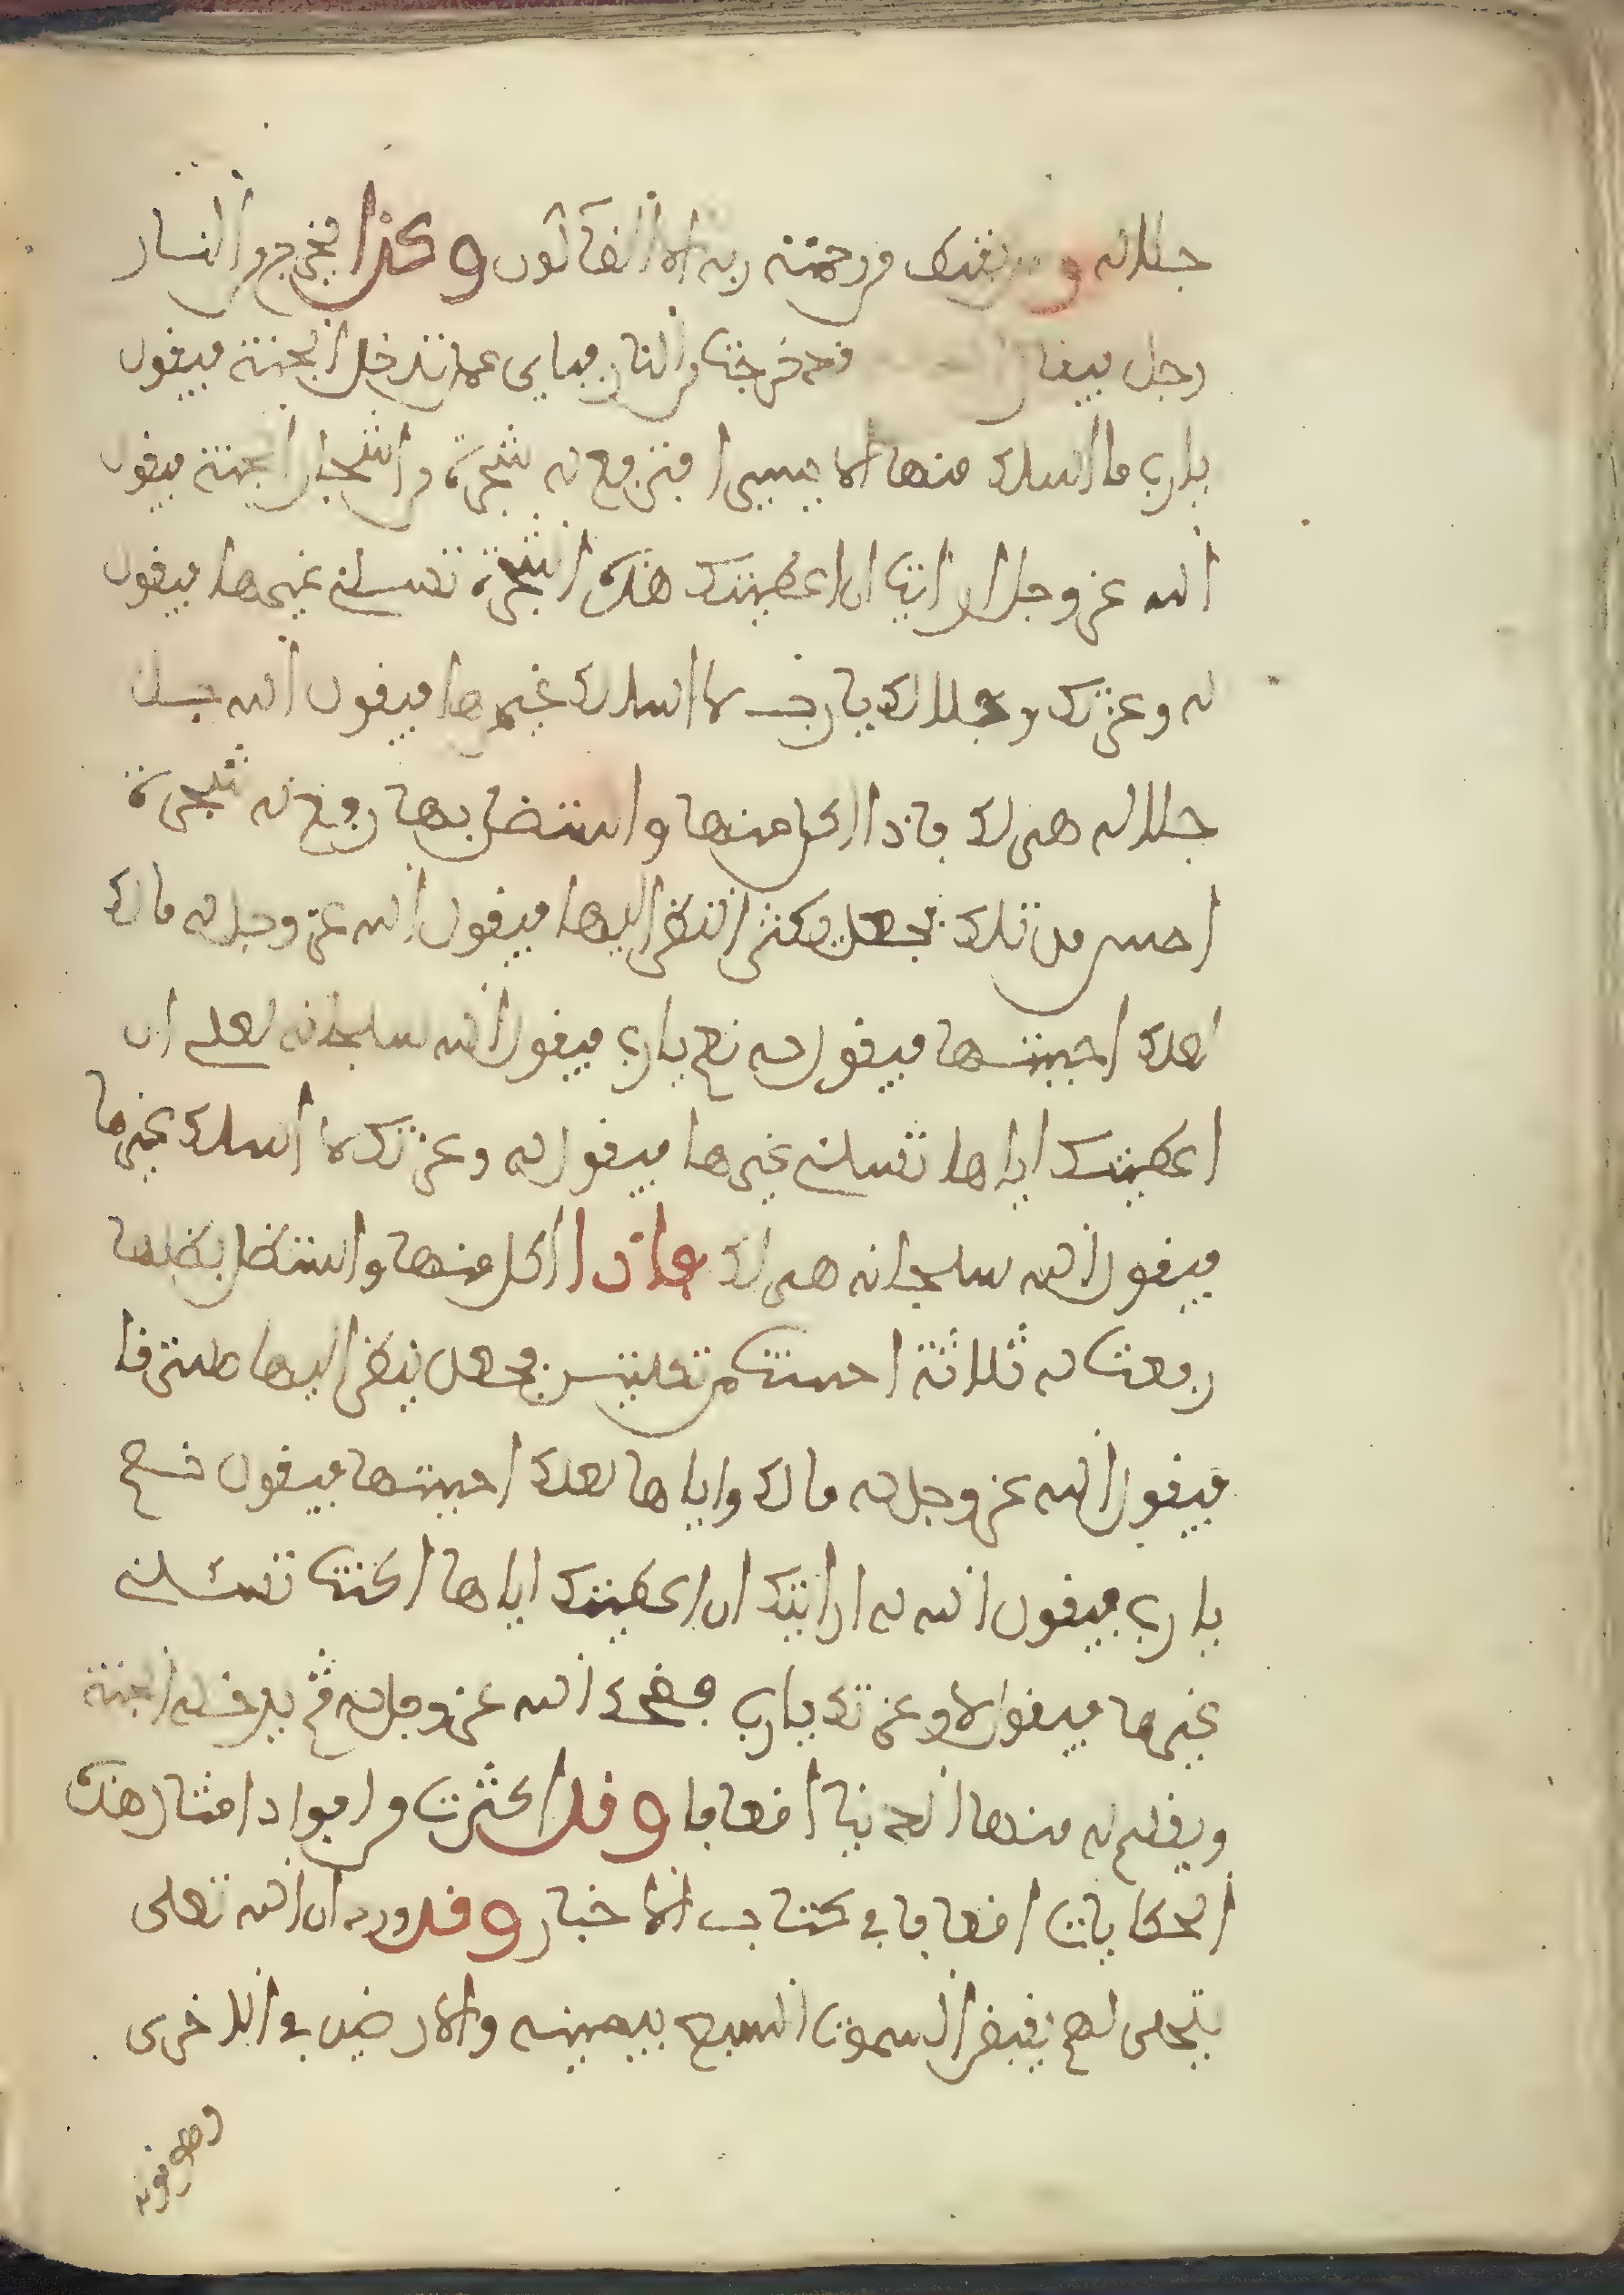 جلاله ومن يقنط من رحمة ربه الا الضالون وكذا يخرج من النار
رجل فيقال قد خرجت من النار فباي عمل تدخل الجنة فيقول
يارب ما اسلك منها الا يسيرا فترفع له شجرة من اشجار الجنة فيقول
الله عز وجل ارايت ان اعطيتك هذه الشجرة تسلني غيرها فيقول
له وعزتك وجلالك يارب لا اسلك غيرها فيقول الله جل
جلاله هي لك فاذا اكل منها واستضل بها رفع له شجرة
احسن من تلك فجعل يكثر النظر اليها فيقول الله عز وجل له مالك
لعلك احببتها فيقول له نعم يارب فيقول الله سبحانه لعلي ان
اعطيتك اياها تسلني غيرها فيقول له وعزتك لا اسلك غيرها
فيقول الله سبحانه هي لك فاذا اكل منها واستظل بظلها
رفعت له ثلاثة احسنت من تعليتين فجعل ينظر اليها
فيقول الله عز وجل له مالك واياها لعلك احببتها فيقول نعم
يارب فيقول الله له ارايتك ان اعطيتك اياها اكنت تسئلني
غيرها فيقول لا وعزتك يارب فضحك الله عز وجل له ثم يدخله الجنة
ويقسم له منها الدنيا اضعافا وقد اكثرت من ايراد امثال هذه
الحكايات اضعافا في كتاب الاخبار وقد ورد ان الله تعلى
يتجلى لهم يقبض السموت السبع بيمينه والارضين في الاخرى